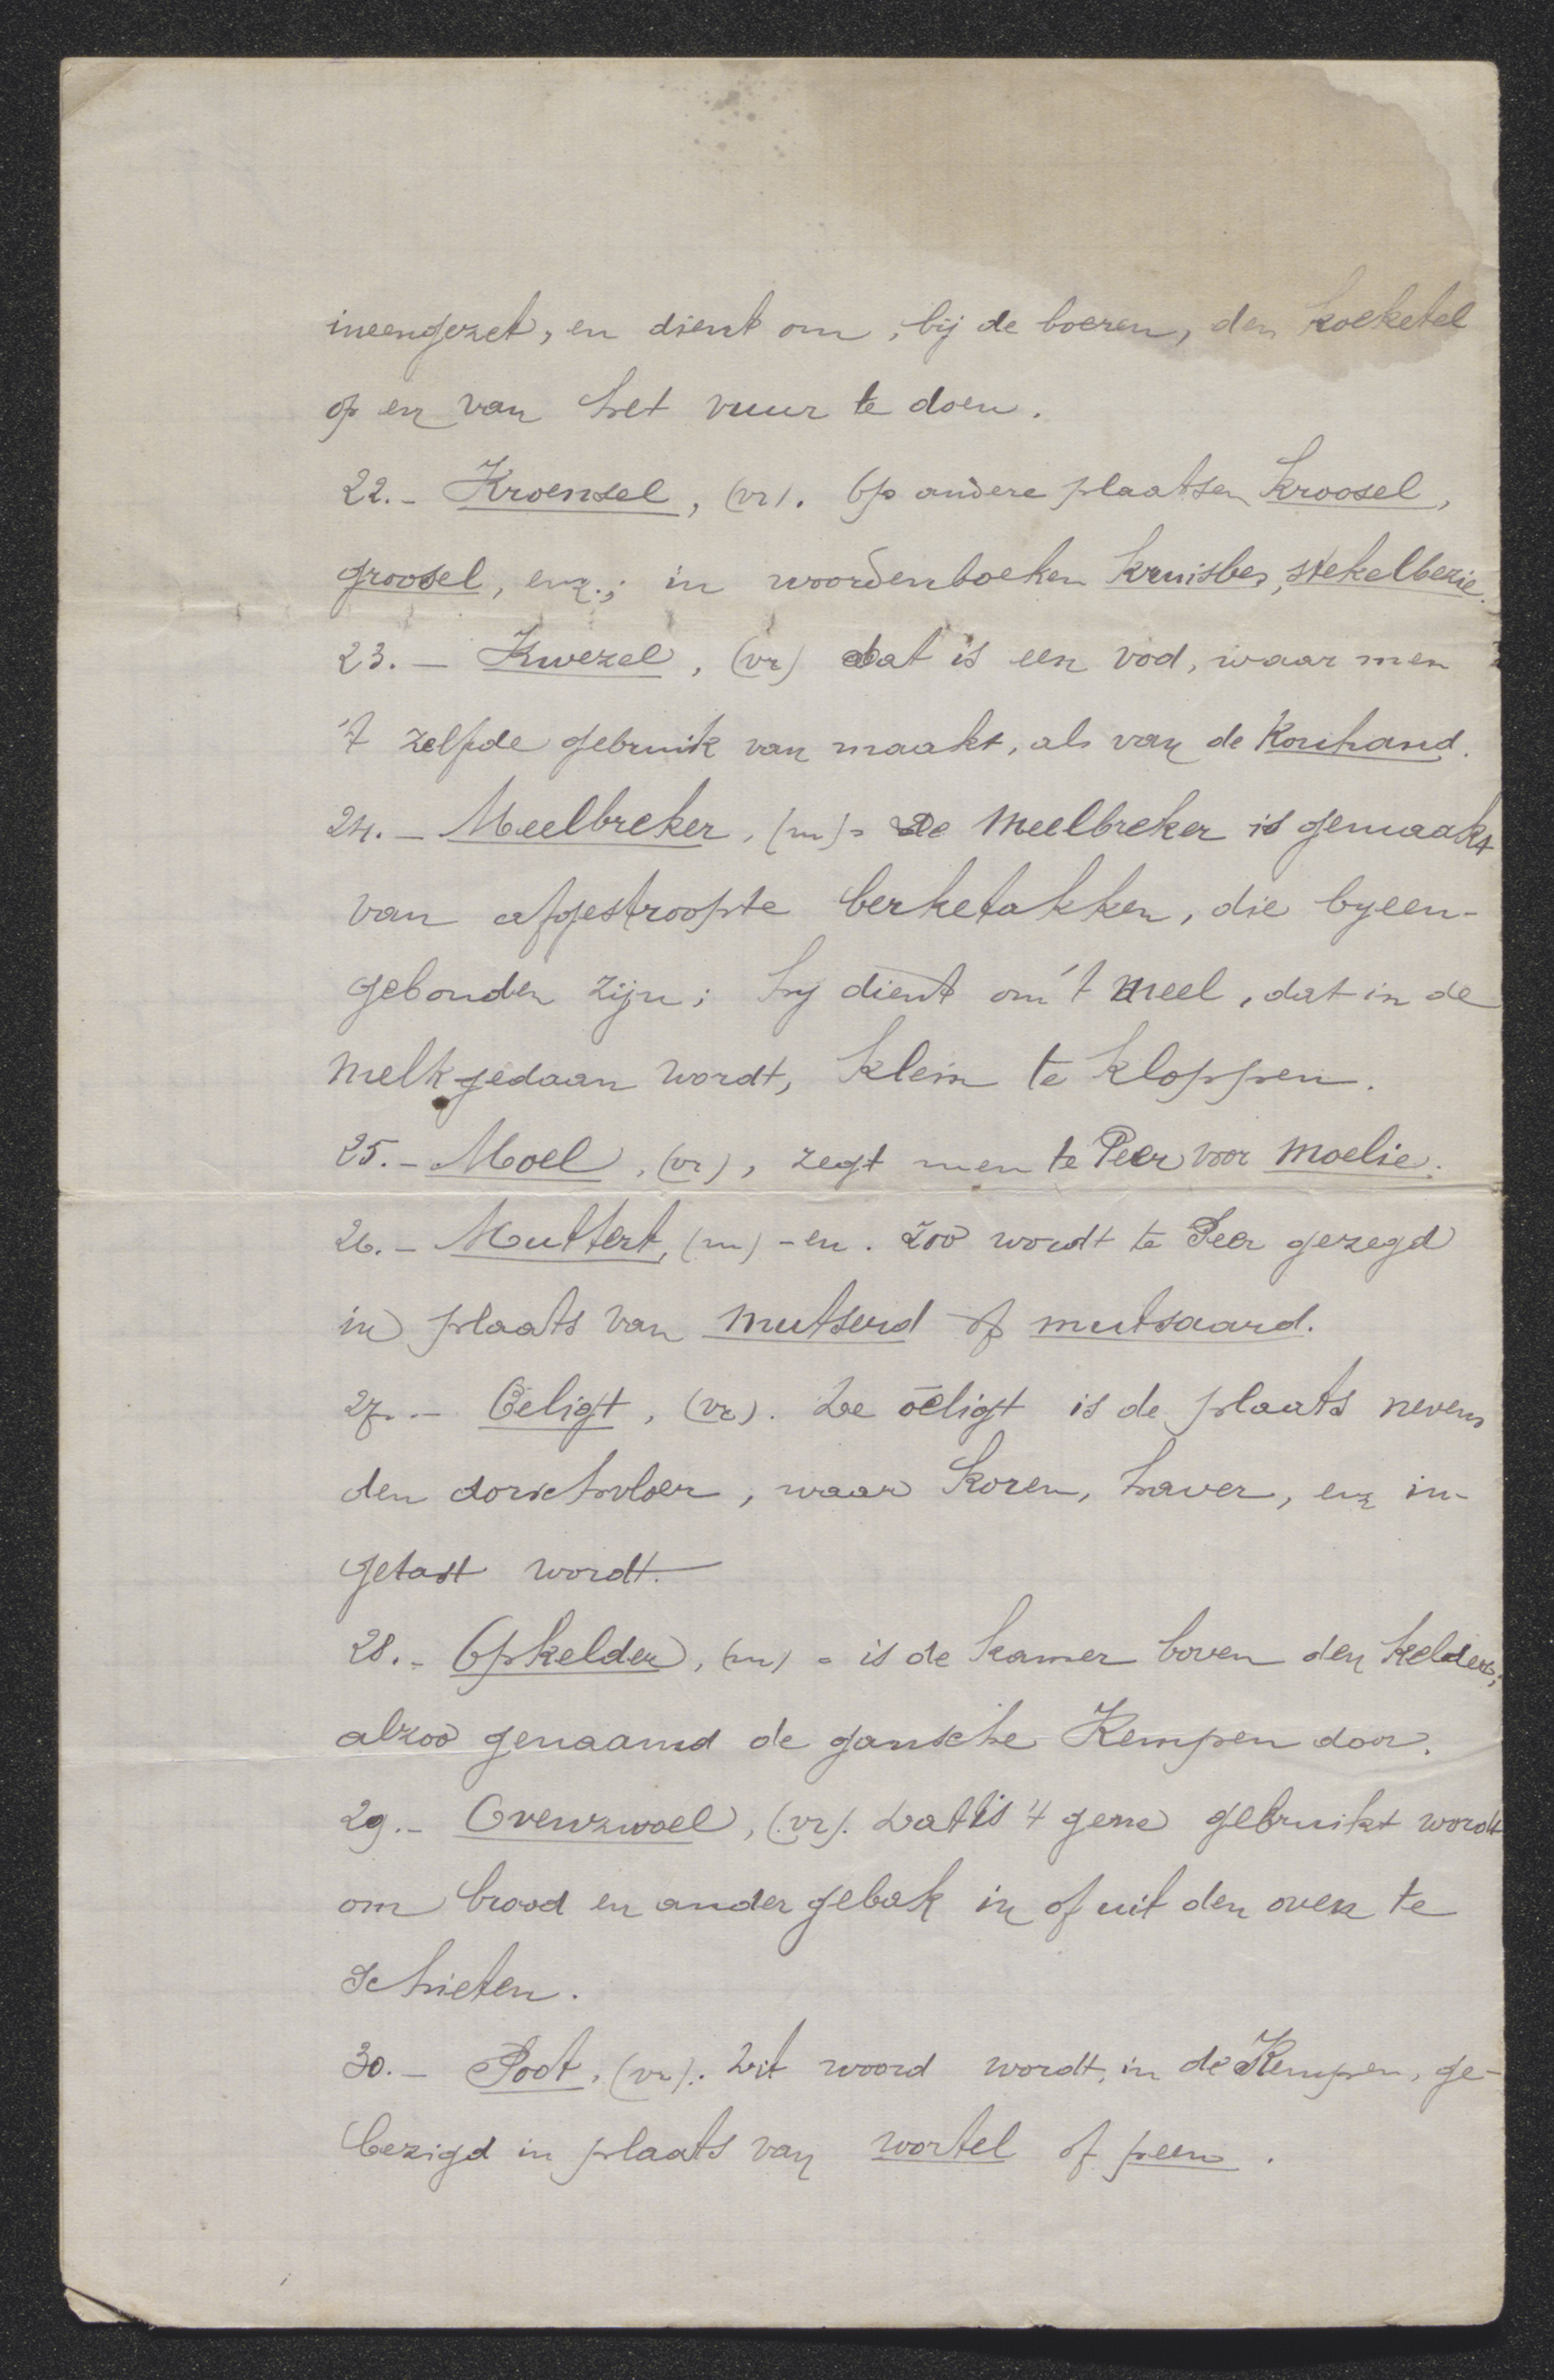 ineengezet, en dient om, bij de boeren, den koeketel
op en van het vuur te doen.
22.- Kroensel, (vr). Op andere plaatsen kroosel,
groosel, enz.; in woordenboeken kruisbes, stekelbezie.
23.- Kwezel, (vr) dat is een vod, waar men
't zelfde gebruik van maakt, als van de Kouhand.
24.- Meelbreker, (m)- De meelbreker is gemaakt
van afgestroopte berketakken, die byeen-
gebonden zijn; hij dient om 't meel, dat in de
melk gedaan wordt, klein te kloppen.
25.- Moel, (vr), zegt men te Peer voor moelie.
26.- Muttert, (m) -en. Zoo wordt te Peer gezegd
in plaats van mutserd of mutsaard.
27.- Oēligt, (vr). De oēligt is de plaats nevens
den dorschvloer, waar koren, haver, enz in-
getast wordt.
28.- Opkelder, (m) - is de kamer boven den kelder;
alzoo genaamd de gansche Kempen door.
29.- Ovenzwoel, (vr). Dat is 't gene gebruikt wordt
om brood en ander gebak in of uit den oven te
schieten.
30.- Poot, (vr). Dit woord wordt, in de Kempen, ge-
bezigd in plaats van wortel of peen.